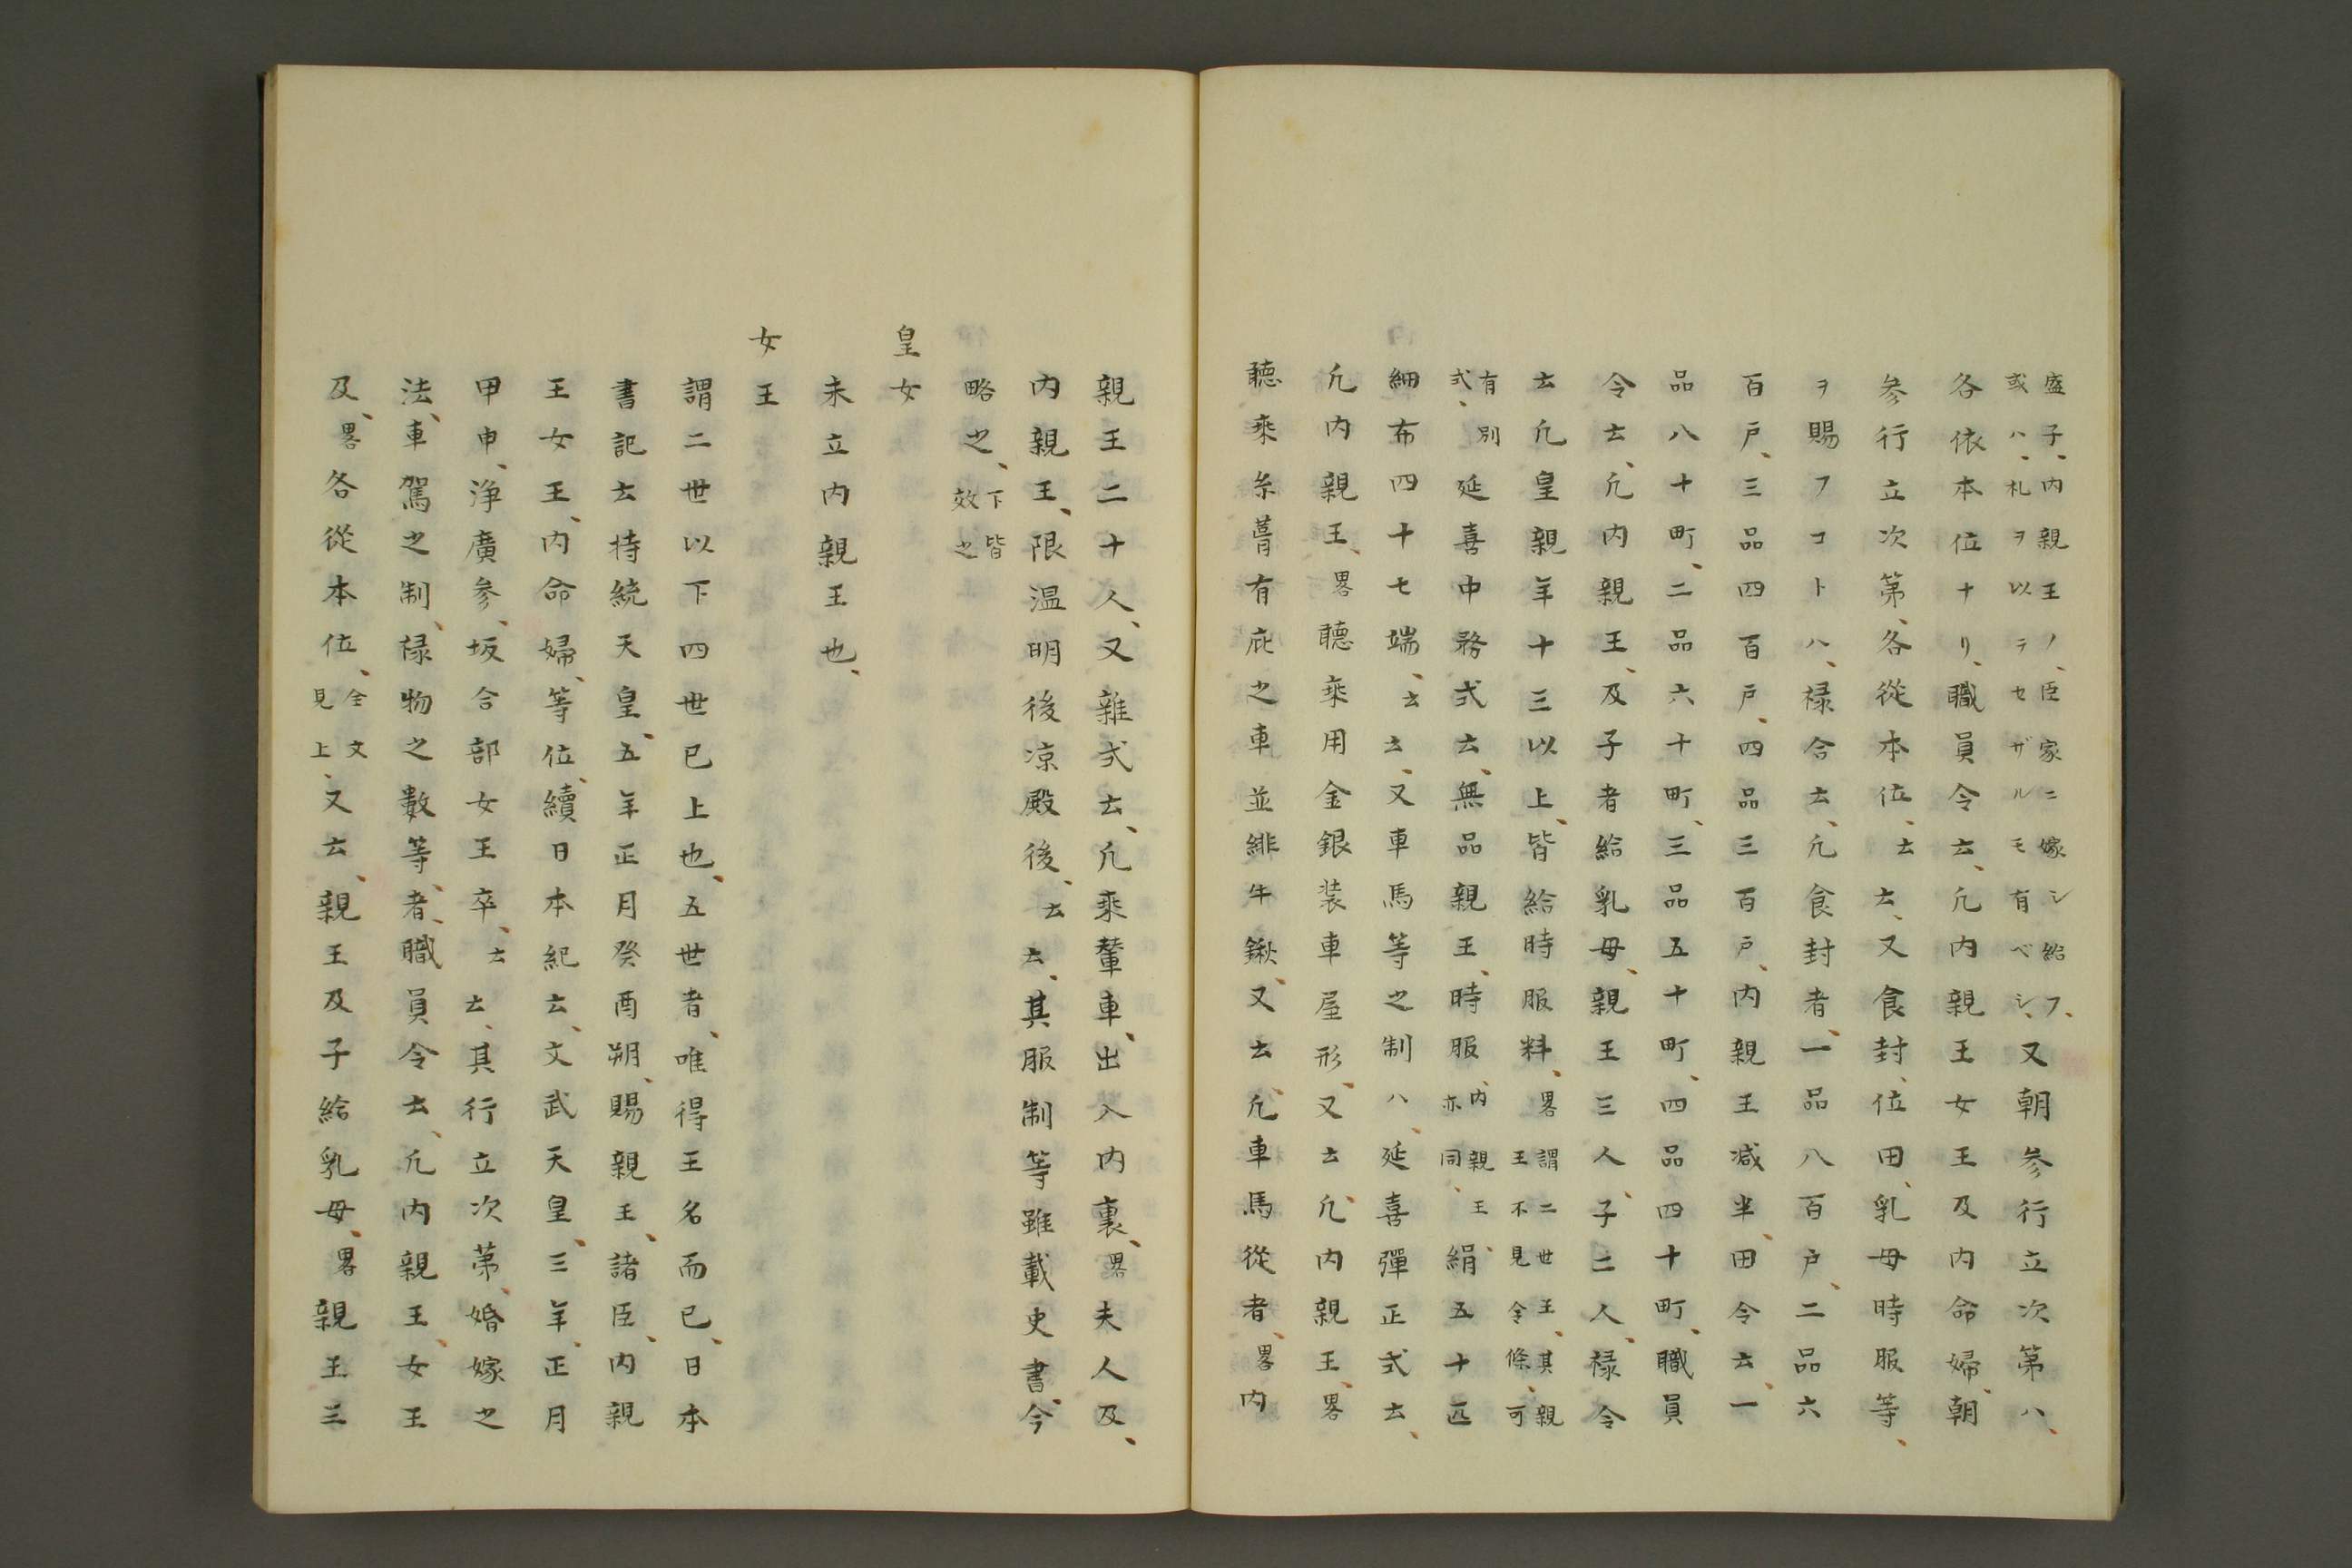 盛子、内親王ノ、臣家ニ嫁シ給フ、
或ハ、札ヲ以テセザルモ有ベシ、又朝参行立次第ハ、
各依本位ナリ、職員令云、凡内親王女王及内命婦、朝
参行立次第、各從本位、云云、又食封、位田、乳母時服等、
ヲ賜フコトハ、禄令云、凡食封者、一品八百戸、二品六
百戸、三品四百戸、四品三百戸、内親王減半、田令云、一
品八十町、二品六十町、三品五十町、四品四十町、職員
令云、凡内親王、及子者給乳母、親王三人、子二人、禄令
云凡皇親年十三以上、皆給時服料、畧謂二世王、其親
王不見令條、可
有別
式、延喜中務式云、無品親王、時服、内親王
亦同、絹五十匹
細布四十七端、云云、又車馬等之制ハ、延喜彈正式云、
凡内親王、畧聽乘用金銀装車屋形、又云凡、内親王、畧
聽乘糸葺有庇之車並緋牛鞦、又云、凡車馬從者、畧内
親王二十人、又雜式云、凡乘輦車、出入内裏、畧夫人及、
内親王、限温明後凉殿後、云云、其服制等雖載史書、今
略之、下皆
效之
皇女
未立内親王也、
女王
謂二世以下四世已上也、五世者、唯得王名而已、日本
書記云持統天皇、五年正月癸酉朔、賜親王、諸臣、内親
王女王、内命婦、等位、續日本紀云、文武天皇、三年、正月
甲申、浄廣参、坂合部女王卒、云云、其行立次第、婚嫁之
法、車駕之制、禄物之數等、者、職員令云、凡内親王、女王
及、畧各從本位、全文
見上、又云、親王及子給乳母、畧親王三